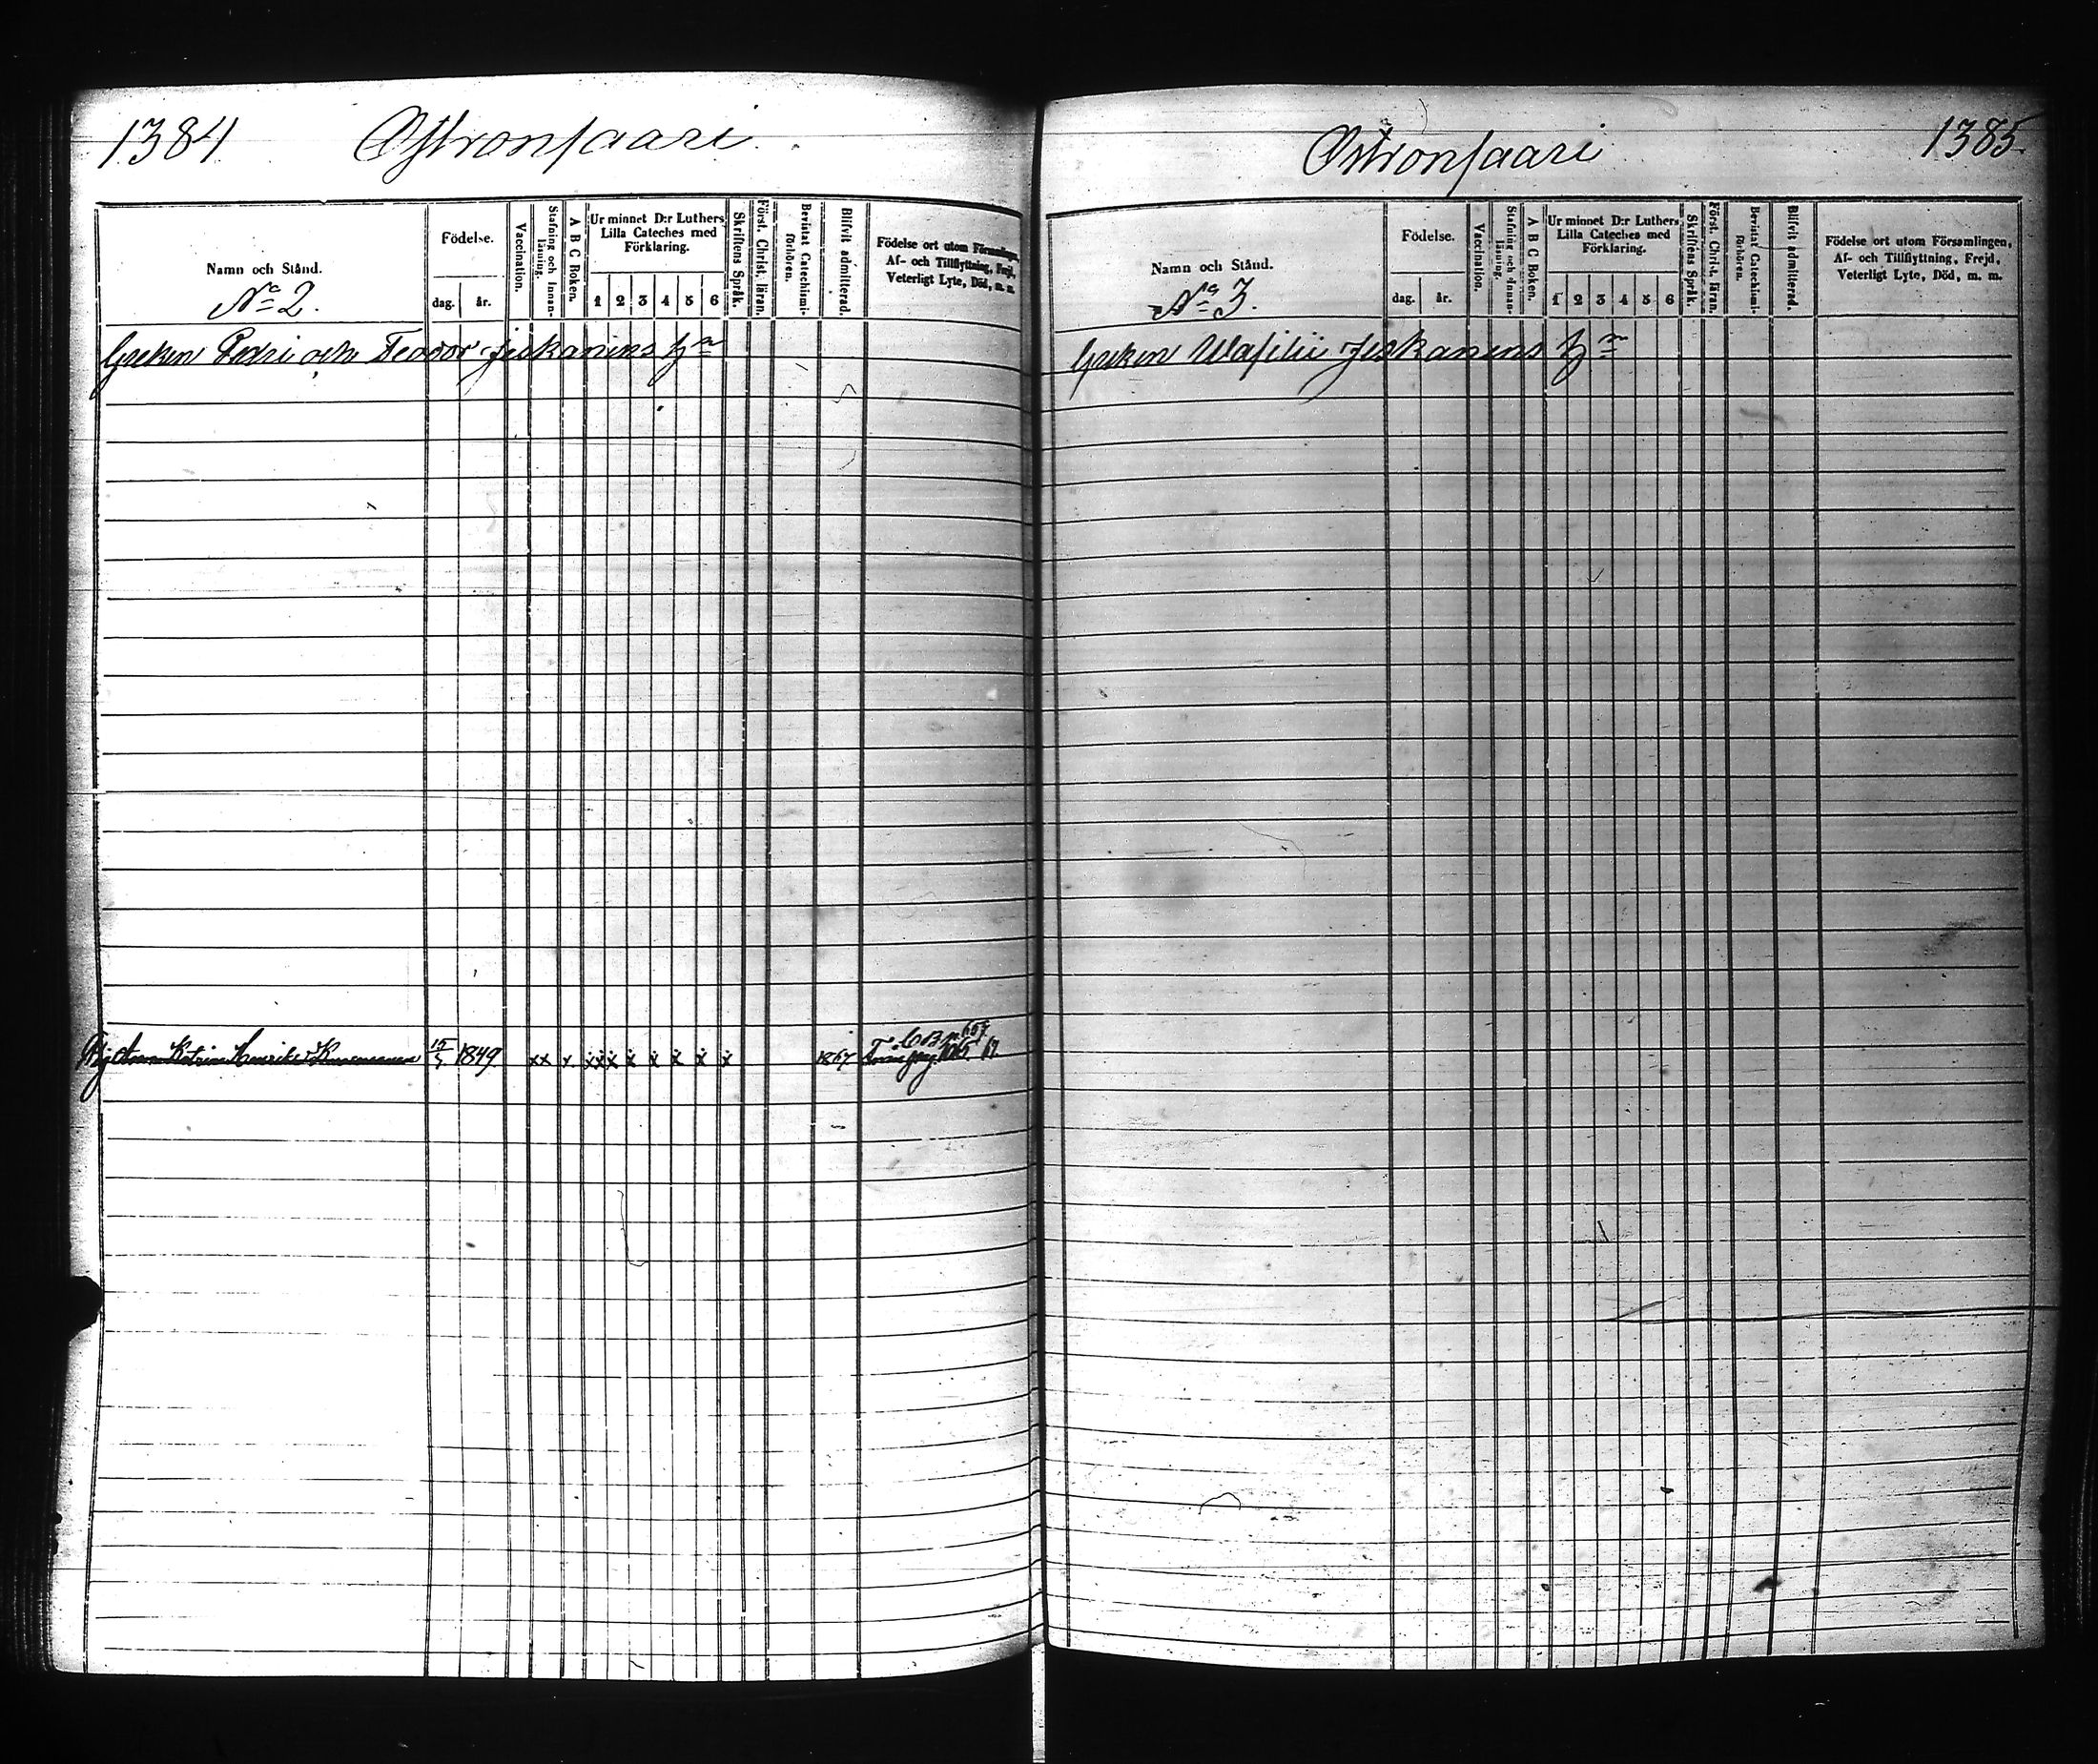 1384 Ostronsaari
Namn och Stånd.
Nº 2.
Födelse.
dag. år.
Vaccination.
Stafning och Innan-läsning.
A B C Boken.
Ur minnet D:r Luthers
Lilla Cateches med
Förklaring.
1 2 3 4 5 6
Skriftens Språk.
Först. Christ. läran.
Bevistat Catechismi-förhören.
Blifvit admitterad.
Födelse ort utom Församlingen,
Af- och Tillflyttning, Frejd,
Veterligt Lyte, Död, m. m.
Greken Pedri och Feodor Jeskanens hn
Anna Katrina Henriksd 15/4 1849 xx x xxx x x x x x 1867
Ostronsaari 1385
Namn och Stånd.
Nº 3.
Födelse.
dag. år.
Vaccination.
Stafning och Innan-läsning.
A B C Boken.
Ur minnet D:r Luthers
Lilla Cateches med
Förklaring.
1 2 3 4 5 6
Skriftens Språk.
Först. Christ. läran.
Bevistat Catechismi-förhören.
Blifvit admitterad.
Födelse ort utom Församlingen,
Af- och Tillflyttning, Frejd,
Veterligt Lyte, Död, m. m.
Greken Wasilii Jeskanens hn